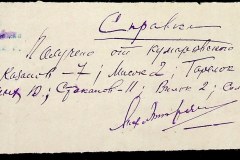 Справка
Получено от
Казанов – 7; Мисок 2; Тарелок
10; Стаканов – 11; Вилок 2;